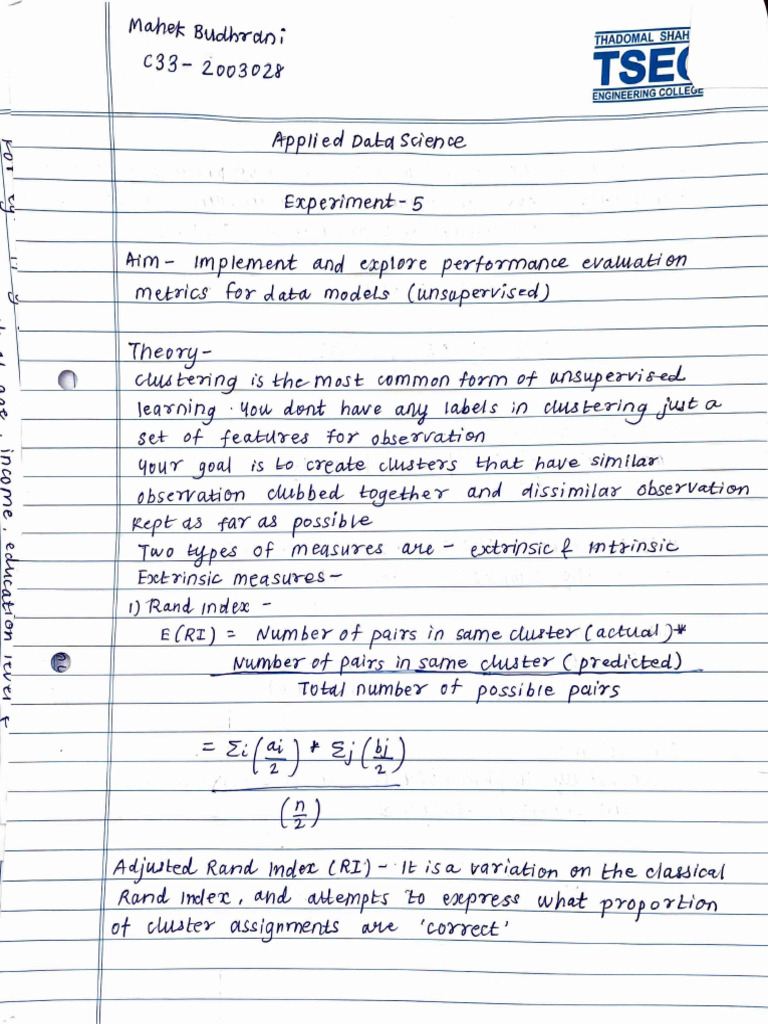 Mahek Budhrani
C33-2003028
THADOMAL SHAH
TSEC
ENGINEERING COLLEGE
Applied Data Science
Experiment-5
Aim- Implement and explore performance evaluation
metrics for data models (unsupervised)
Theory-
Clustering is the most common form of unsupervised
learning. You dont have any labels in clustering just a
set of features for observation
Your goal is to create clusters that have similar
observation clubbed together and dissimilar observation
kept as far as possible
Two types of measures are - extrinsic & intrinsic
Extrinsic measures-
1) Rand Index -
E(RI) = Number of pairs in same cluster (actual)*
Number of pairs in same cluster (predicted)
Total number of possible pairs
= Σi(ai/2) * Σj(bj/2)
(n/2)
Adjusted Rand Index (RI) - It is a variation on the classical
Rand Index, and attempts to express what proportion
of cluster assignments are 'correct'
income, education level